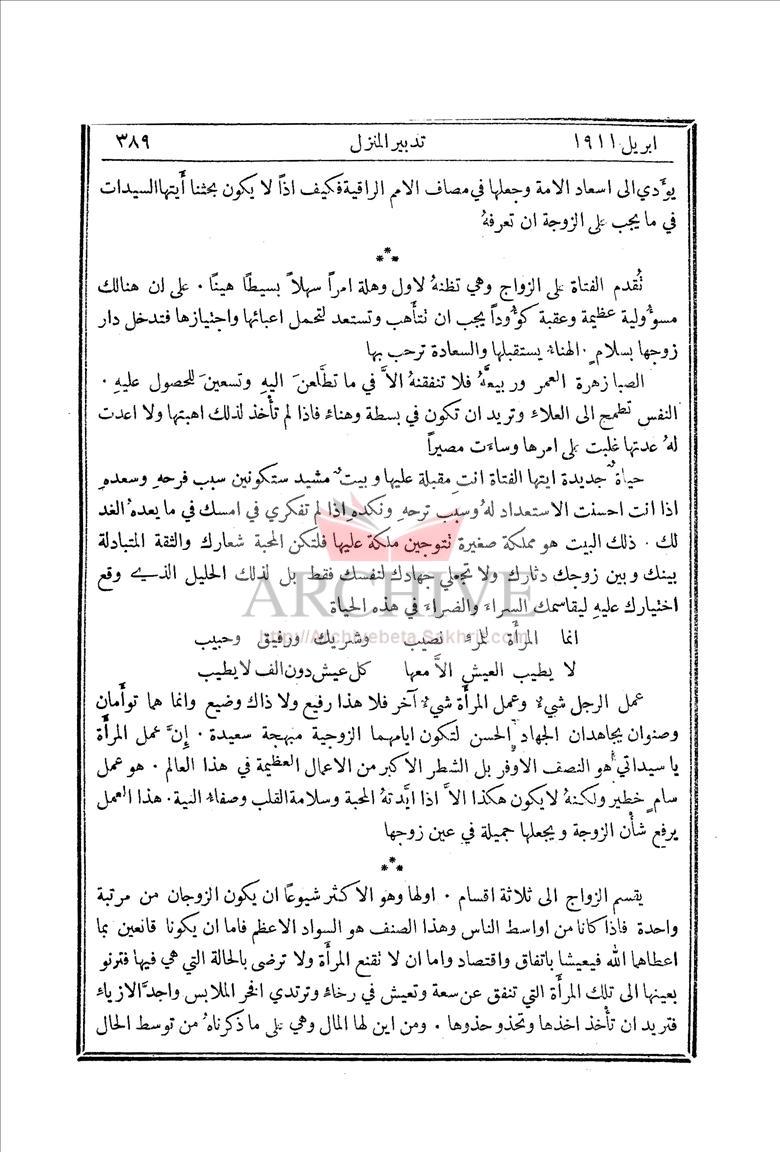 ابريل ١٩١١ تدبير المنزل ٣٨٩
يؤدي الى اسعاد الامة وجعلها في مصاف الامم الراقية فكيف اذاً لا يكون بحثنا أيتها السيدات
في ما يجب على الزوجة ان تعرفهُ
***
تُقدم الفتاة على الزواج وهي تظنهُ لاول وهلة امراً سهلاً بسيطًا هينًا . على ان هنالك
مسؤُولية عظيمة وعقبة كؤُوداً يجب ان تتأهب وتستعد لتحمل اعبائها واجتيازها فتدخل دار
زوجها بسلامٍ . الهناءُ يستقبلها والسعادة ترحب بها
الصبا زهرة العمر وربيعهُ فلا تنفقنهُ الاَّ في ما تطَّلعنَ اليهِ وتسعينَ للحصول عليهِ .
النفس تطمح الى العلاء وتريد ان تكون في بسطة وهناء فاذا لم تأخذ لذلك اهبتها ولا اعدت
لهُ عدتها غلبت على امرها وساءت مصيراً
حياةٌ جديدة ايتها الفتاة انتِ مقبلة عليها وبيتٌ مشيد ستكونين سبب فرحهِ وسعدهِ
اذا انت احسنت الاستعداد لهُ وسبب ترحهِ ونكدهِ اذا لم تفكري في امسك في ما يعدهُ الغد
لك . ذلك البيت هو مملكة صغيرة تتوجين ملكة عليها فلتكن المحبة شعارك والثقة المتبادلة
بينك وبين زوجك دثارك ولا تجعلي جهادك لنفسك فقط بل لذلك الحليل الذي وقع
اختيارك عليهِ ليقاسمك السراءَ والضراءَ في هذه الحياة
ARCHIVE
http://Archivebeta.Sakhrit.com
انما المرأة للمرء نصيب وشريك ورفيق وحبيب
لا يطيب العيش الاَّ معها كل عيش دون الف لا يطيب
عمل الرجل شيءٌ وعمل المرأة شيءٌ آخر فلا هذا رفيع ولا ذاك وضيع وانما هما توأمان
وصنوان يجاهدان الجهاد الحسن لتكون ايامهما الزوجية مبهجة سعيدة . إنَّ عمل المرأة
يا سيداتي هو النصف الاوفر بل الشطر الاكبر من الاعمال العظيمة في هذا العالم . هو عمل
سامٍ خطير ولكنهُ لا يكون هكذا الاَّ اذا ايَّدتهُ المحبة وسلامة القلب وصفاء النية . هذا العمل
يرفع شأن الزوجة ويجعلها جميلة في عين زوجها
***
يقسم الزواج الى ثلاثة اقسام . اولها وهو الاكثر شيوعًا ان يكون الزوجان من مرتبة
واحدة فاذا كانا من اواسط الناس وهذا الصنف هو السواد الاعظم فاما ان يكونا قانعين بما
اعطاهما الله فيعيشا باتفاق واقتصاد واما ان لا تقنع المرأة ولا ترضى بالحالة التي هي فيها فترنو
بعينها الى تلك المرأة التي تنفق عن سعة وتعيش في رخاء وترتدي افخر الملابس واجدَّ الازياء
فتريد ان تأخذ اخذها وتحذو حذوها . ومن اين لها المال وهي على ما ذكرناهُ من توسط الحال